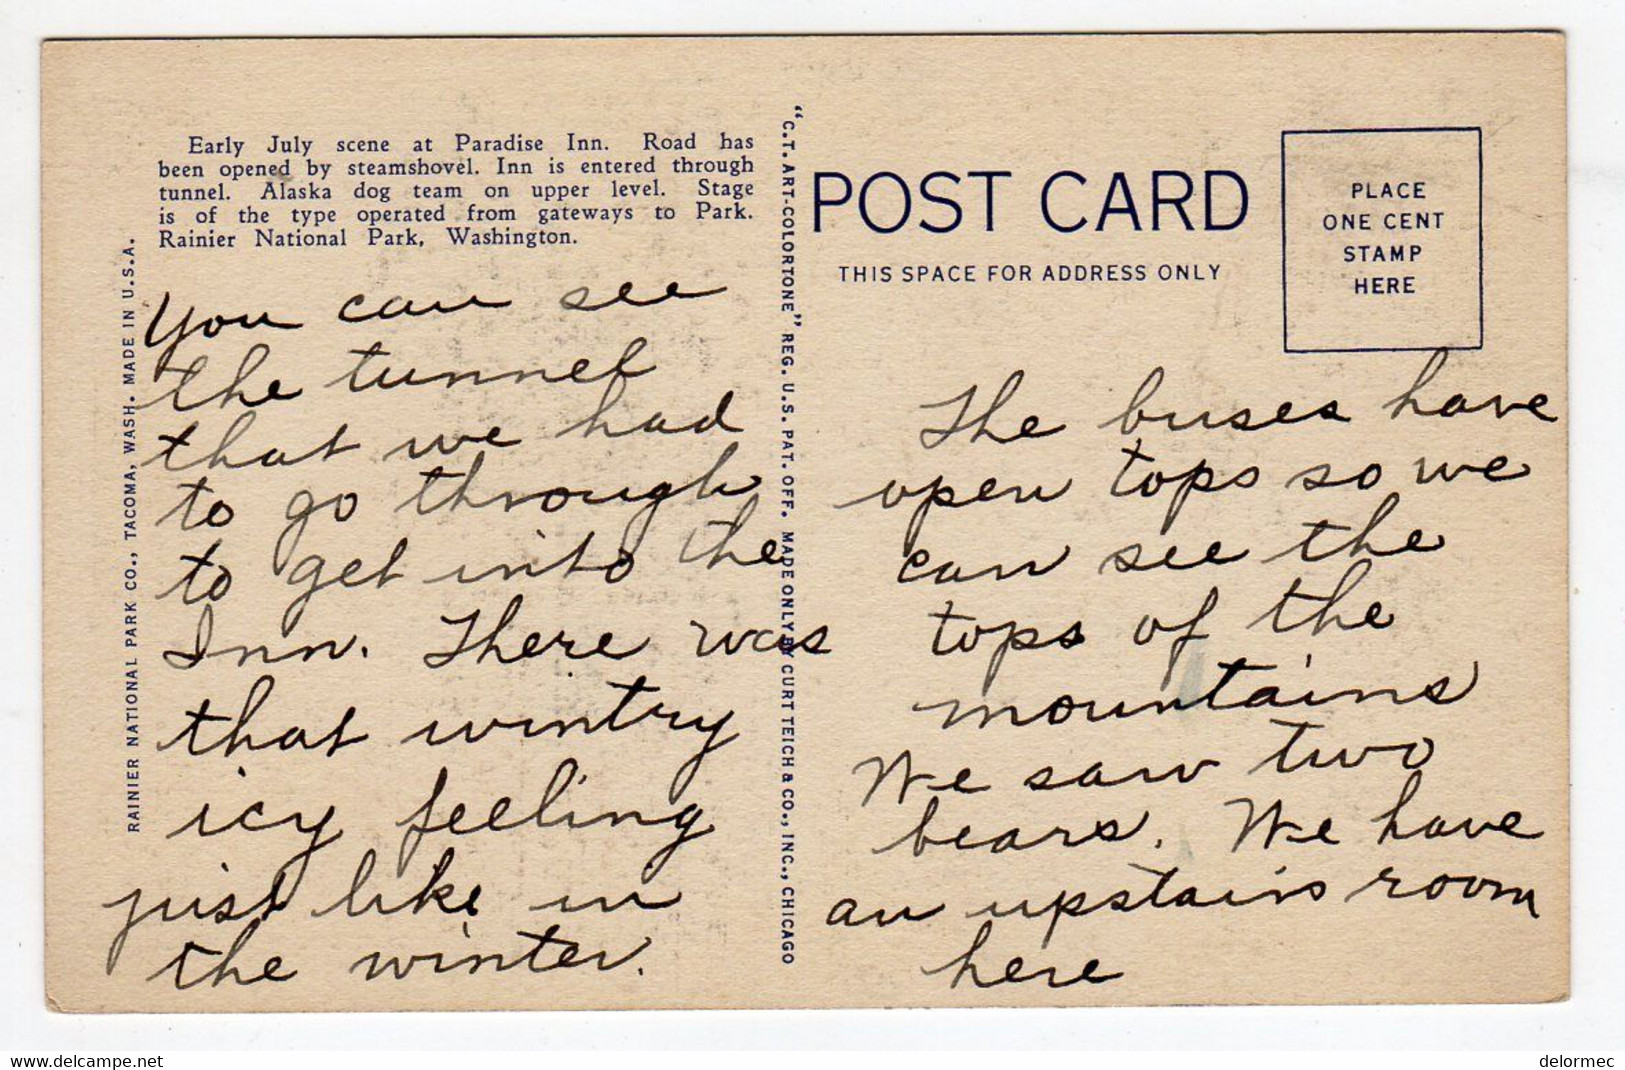 Early July scene at Paradise Inn. Road has
been opened by steamshovel. Inn is entered through
tunnel. Alaska dog team on upper level. Stage
is of the type operated from gateways to Park.
Rainier National Park, Washington.
RAINIER NATIONAL PARK CO., TACOMA, WASH. MADE IN U.S.A.
You can see
the tunnel
that we had
to go through
to get into the
Inn. There was
that wintry
icy feeling
just like in
the winter.
"C.T. ART-COLORTONE" REG. U.S. PAT. OFF. MADE ONLY BY CURT TEICH & CO., INC., CHICAGO
POST CARD
THIS SPACE FOR ADDRESS ONLY
PLACE
ONE CENT
STAMP
HERE
The buses have
open tops so we
can see the
tops of the
mountains
We saw two
bears. We have
an upstairs room
here
https://www.delcampe.net
delormec